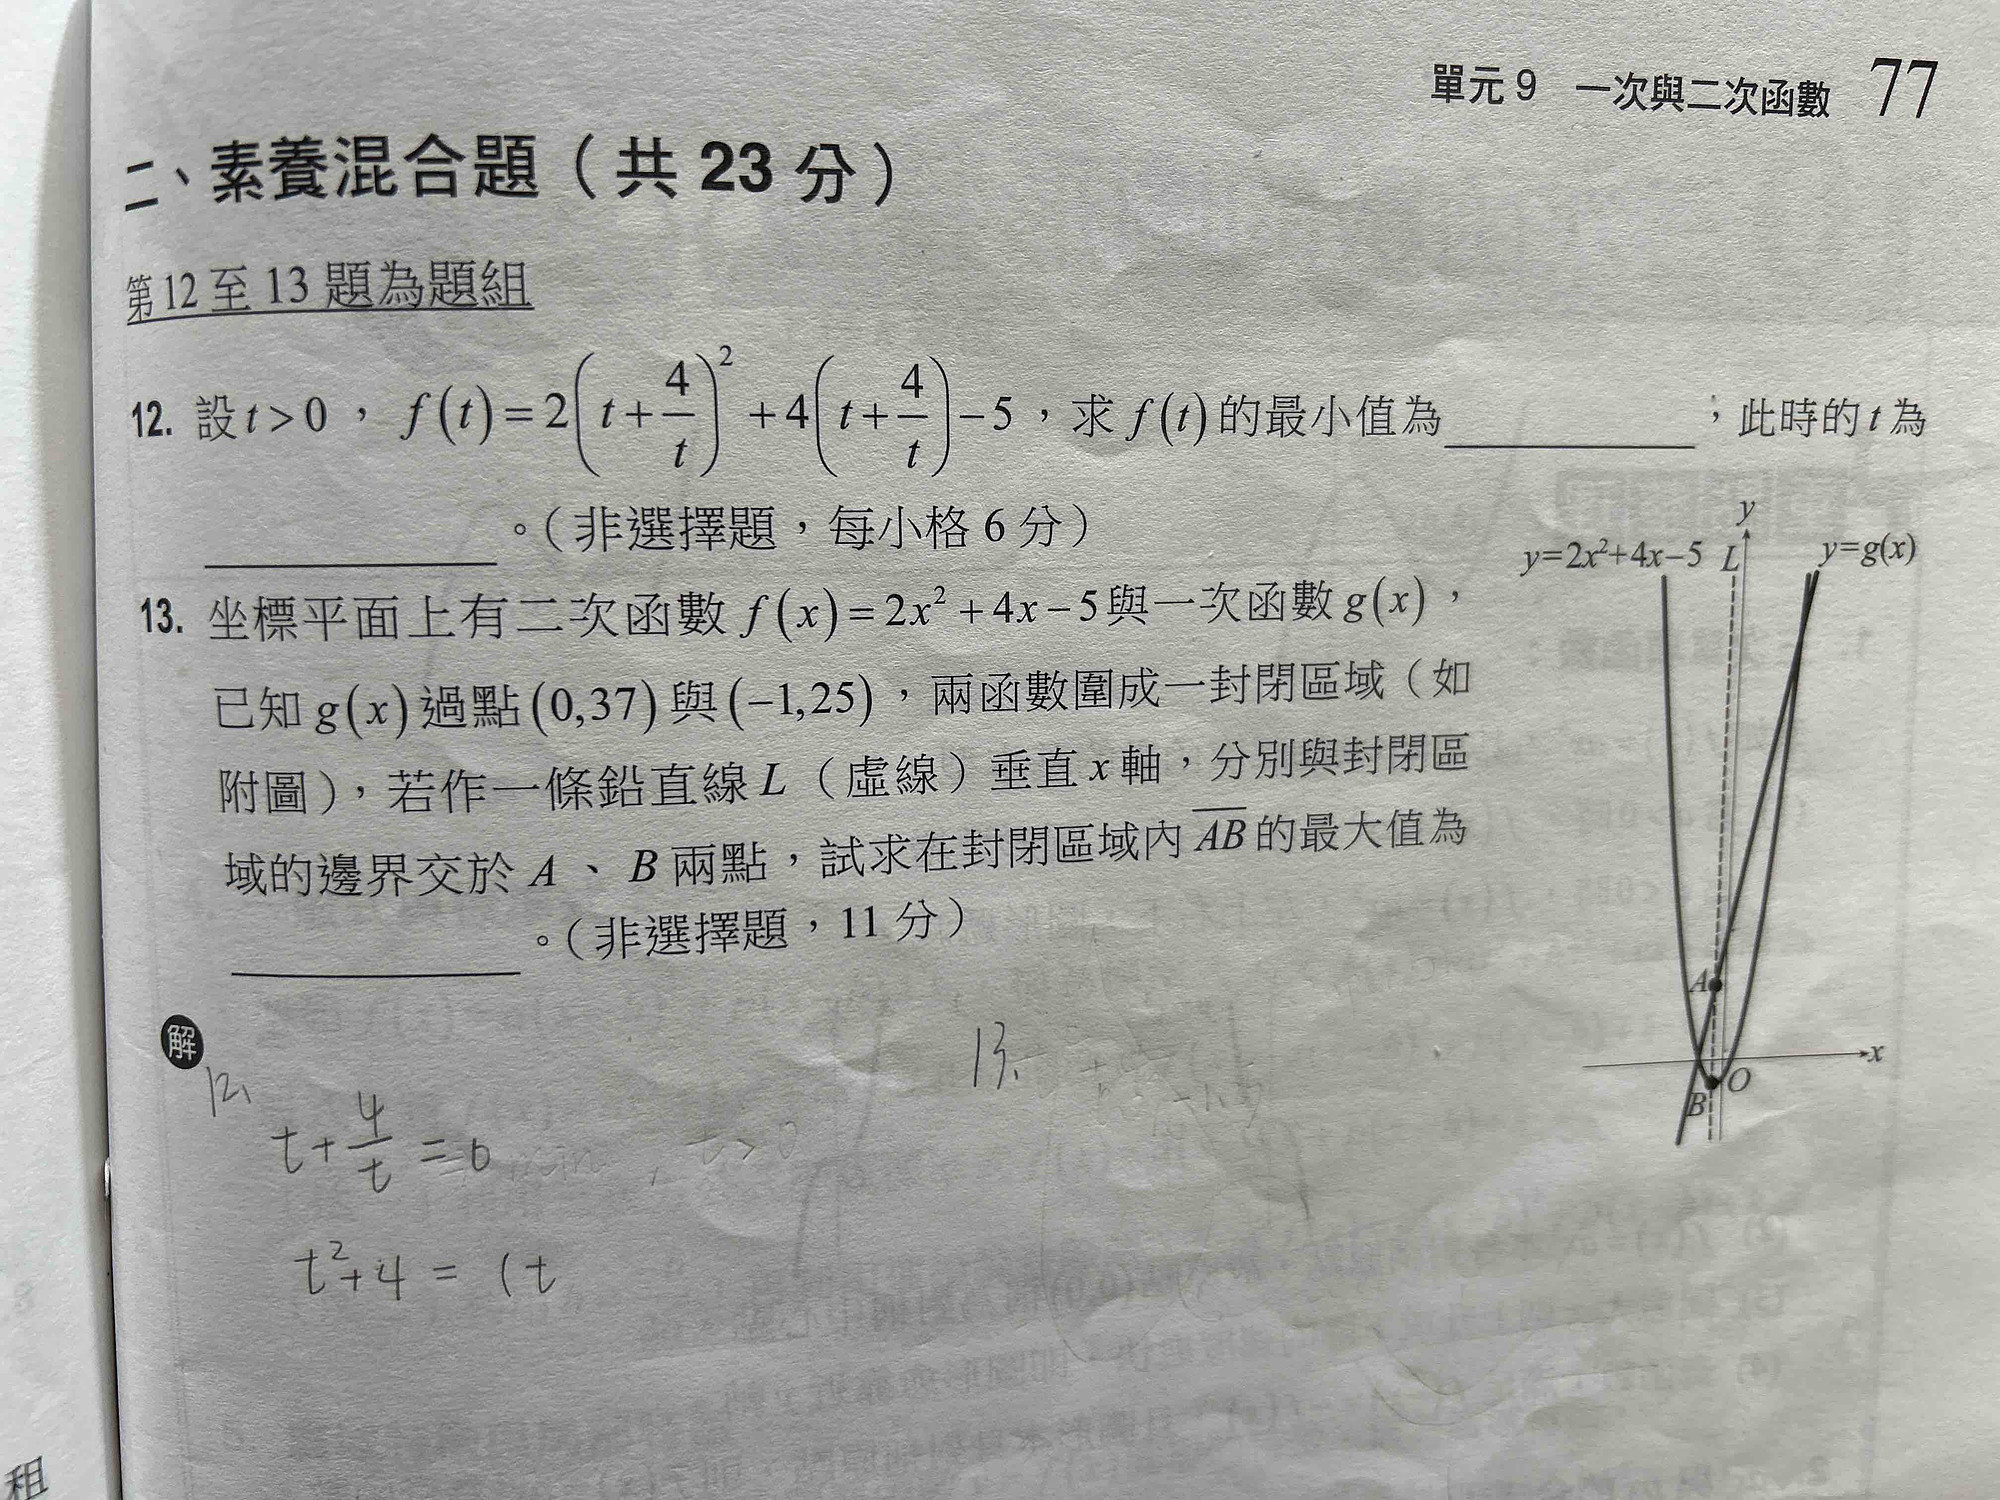 單元9 一次與二次函數 77
二、素養混合題（共 23 分）
第12至13題為題組
12. 設 t>0，f(t)=2(t+4/t)²+4(t+4/t)-5，求 f(t) 的最小值為________，此時的 t 為
________。（非選擇題，每小格 6 分）
13. 坐標平面上有二次函數 f(x)=2x²+4x-5 與一次函數 g(x)，
已知 g(x) 過點 (0,37) 與 (-1,25)，兩函數圍成一封閉區域（如
附圖），若作一條鉛直線 L（虛線）垂直 x 軸，分別與封閉區
域的邊界交於 A、B 兩點，試求在封閉區域內 AB 的最大值為
________。（非選擇題，11 分）
y
y=2x²+4x-5 L y=g(x)
A
x
O
B
解
12.
13.
t+4/t=6
t²+4=(t
租